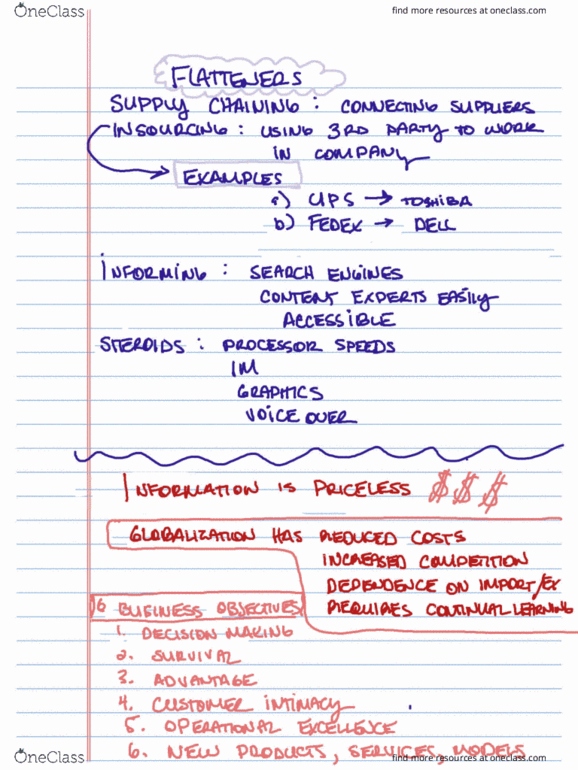 OneClass
find more resources at oneclass.com
FLATTENERS
SUPPLY CHAINING : CONNECTING SUPPLIERS
INSOURCING : USING 3RD PARTY TO WORK
IN COMPANY
EXAMPLES
a) UPS → TOSHIBA
b) FEDEX → DELL
INFORMING : SEARCH ENGINES
CONTENT EXPERTS EASILY
ACCESSIBLE
STEROIDS : PROCESSOR SPEEDS
IM
GRAPHICS
VOICE OVER
INFORMATION IS PRICELESS $ $ $
GLOBALIZATION HAS REDUCED COSTS
INCREASED COMPETITION
DEPENDENCE ON IMPORT/EX
REQUIRES CONTINUAL LEARNING
6 BUSINESS OBJECTIVES
1. DECISION MAKING
2. SURVIVAL
3. ADVANTAGE
4. CUSTOMER INTIMACY
5. OPERATIONAL EXCELLENCE
6. NEW PRODUCTS, SERVICES, MODELS
OneClass
find more resources at oneclass.com